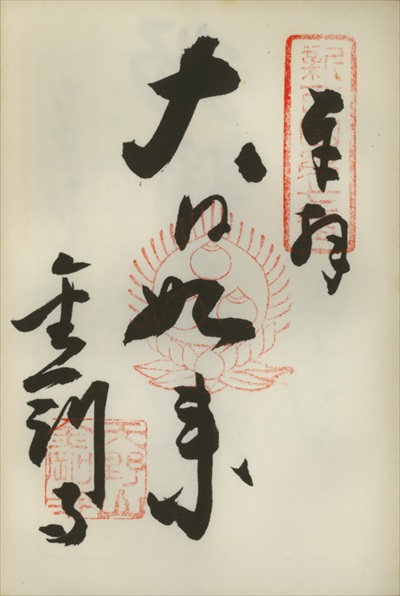 奉拝
大日如来
金剛寺
天野山
金剛寺